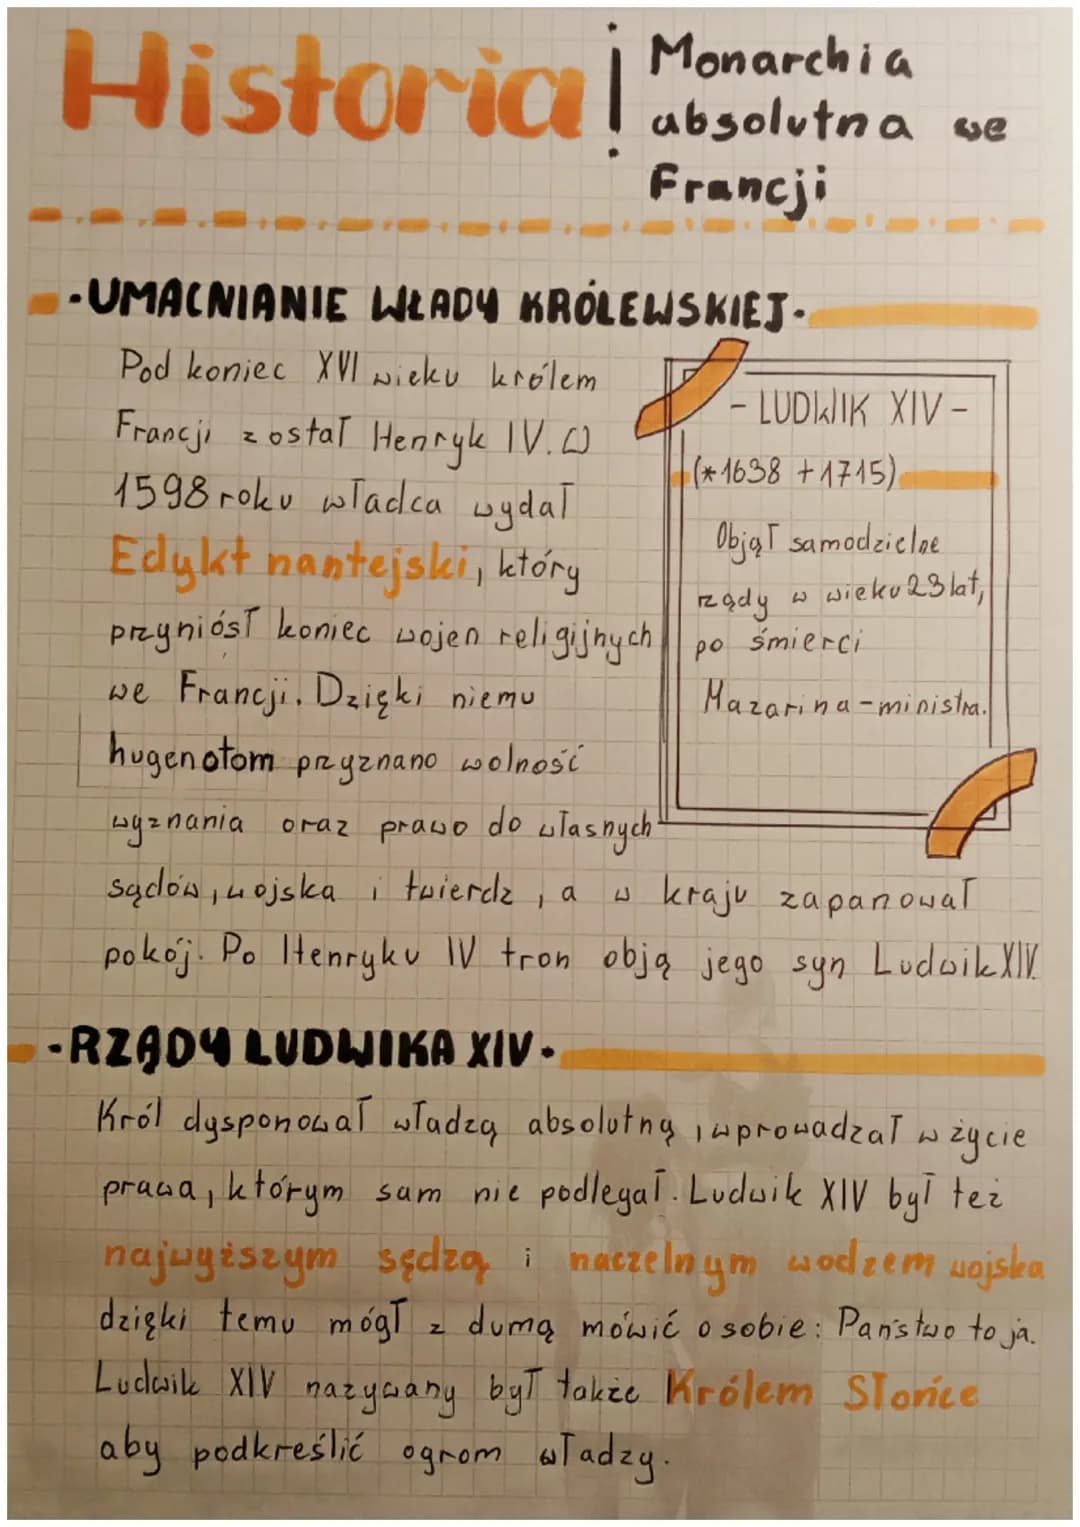 Historia
Monarchia
absolutna we
Francji
-UMACNIANIE WŁADY KRÓLEWSKIEJ-
Pod koniec XVI wieku królem
Francji został Henryk IV. W
1598 roku władca wydał
Edykt nantejski, który
przyniósł koniec wojen religijnych
we Francji. Dzięki niemu
hugenotom przyznano wolność
wyznania oraz prawo do własnych
sądów, wojska i twierdz, a w kraju zapanował
pokój. Po Henryku IV tron obją jego syn Ludwik XIV.
- LUDWIK XIV -
(*1638 +1715)
Objął samodzielne
rządy w wieku 23 lat,
po śmierci
Mazarina-ministra.
-RZĄDY LUDWIKA XIV-
Król dysponował władzą absolutną, wprowadzał w życie
prawa, którym sam nie podlegał. Ludwik XIV był też
najwyższym sędzą i naczelnym wodzem wojska
dzięki temu mógł z dumą mówić o sobie: Państwo to ja.
Ludwik XIV nazywany był także Królem Słońce
aby podkreślić ogrom władzy.